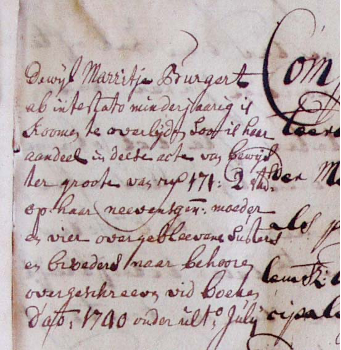 Dewijl Marritje Burgert
ab intestato minderjaarig is
koomen te overlijden, Soo is haar
aandeel in deese acte van bewijs
ter groote van 171: 2
op haar neevensgen. moeder
en vier overgebleevene Susters
en broeders naar behooren
overgeschreeven vid boeken
Dato. 1740 onder ult.o July
Com
leera
den M
als p
cipale